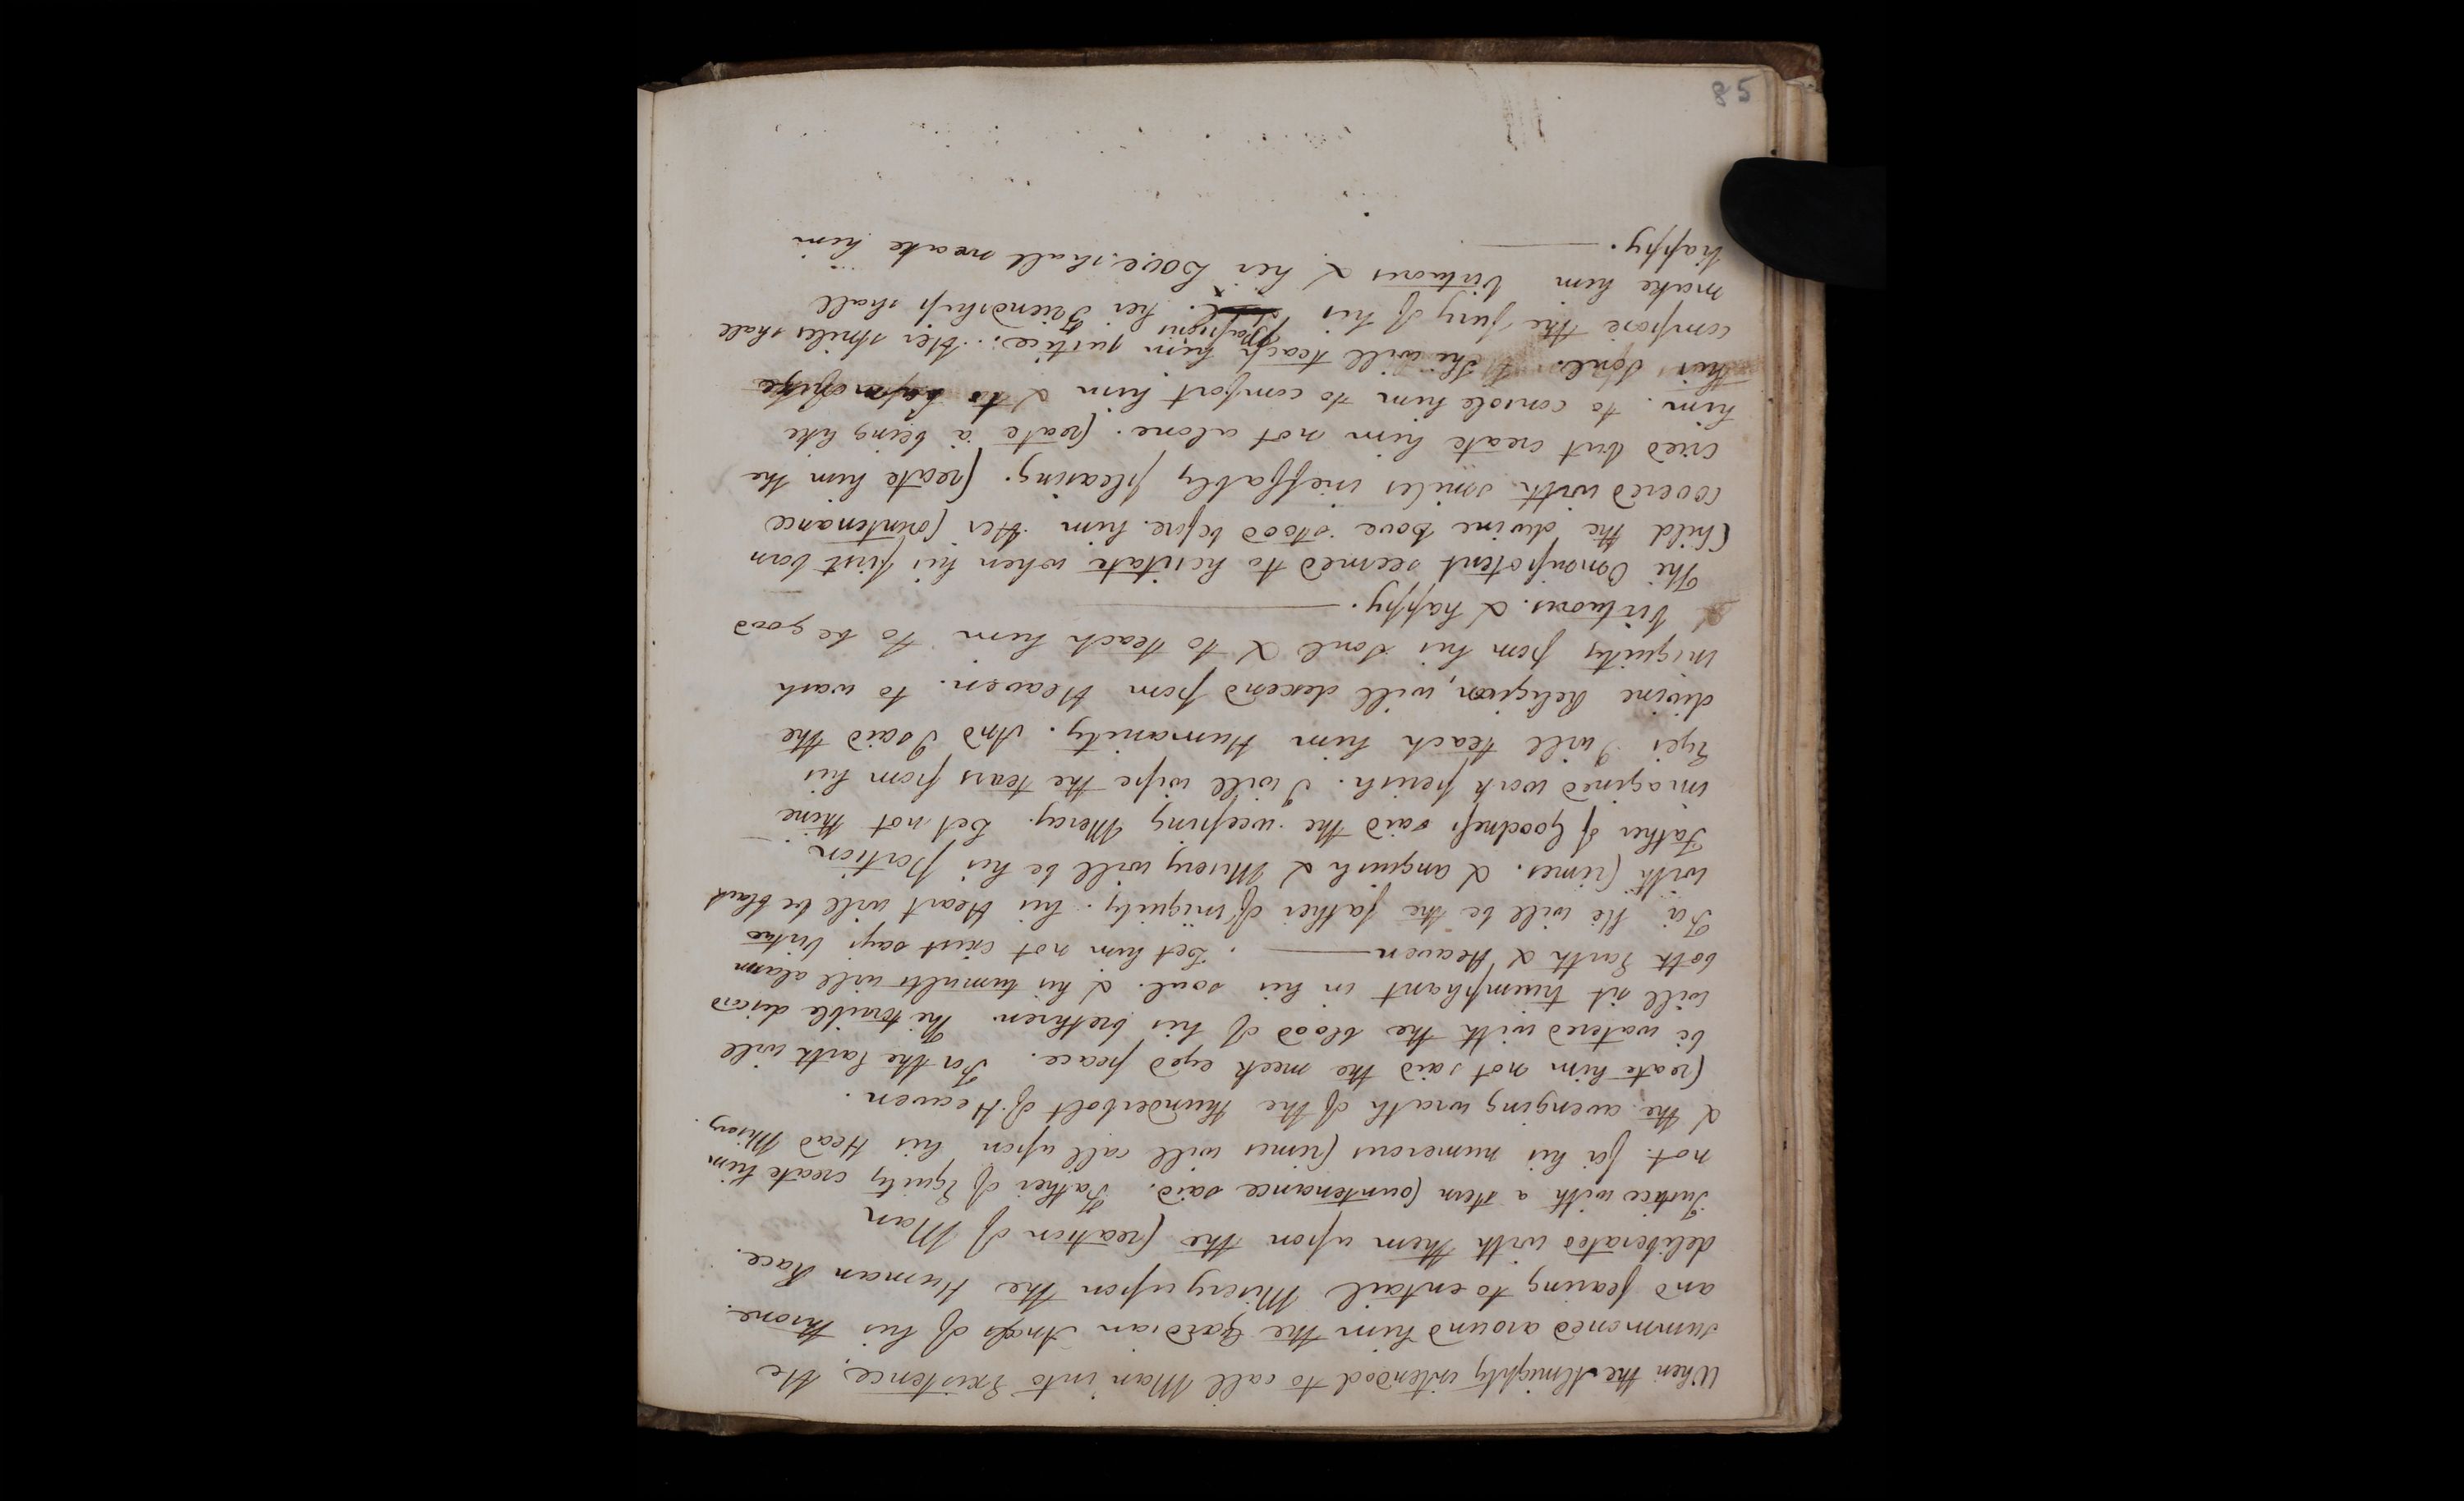 When the Almighty intended to call Man into Existence, He
summoned around him the Gardian Angls of his throne.
and fearing to entail Misery upon the Human Race.
deliberated with them upon the Creation of Man
Justice with a stern Countenance said. Father of Equity create him
not. for his numerous Crimes will call upon his Head Misery.
& the avenging wrath of the thunderbolt of Heaven.
Create him not said the meek eyed peace. For the Earth will
be watered with the blood of his brethren. The terrible discord
will sit triumphant in his soul. & his tumults will alarm
both Earth & Heaven ——— . Let him not exist says Virtue
For He will be the father of iniquity. his Heart will be black
with Crimes. & anguish & Misery will be his portion
Father of Goodness said the weeping Mercy. Let not thine
imagined work perish. I will wipe the tears from his
Eyes I will teach him Humanity. And I said the
divine Religion, will descend from Heaven. to wash
iniquity from his Soul & to teach him to be good
& Virtuous. & happy. ———
The Omnipotent seemed to hesitate when his first born
Child the divine Love stood before him Her Countenance
covered with smiles ineffably pleasing. Create him she
cried but create him not alone. Create a being like
him. to console him to comfort him & to
his Soul. She will teach him justice. Her smiles shall
compose the fury of his passions. her Friendship shall
make him Virtuous & her Love shall make him
happy. ———
85